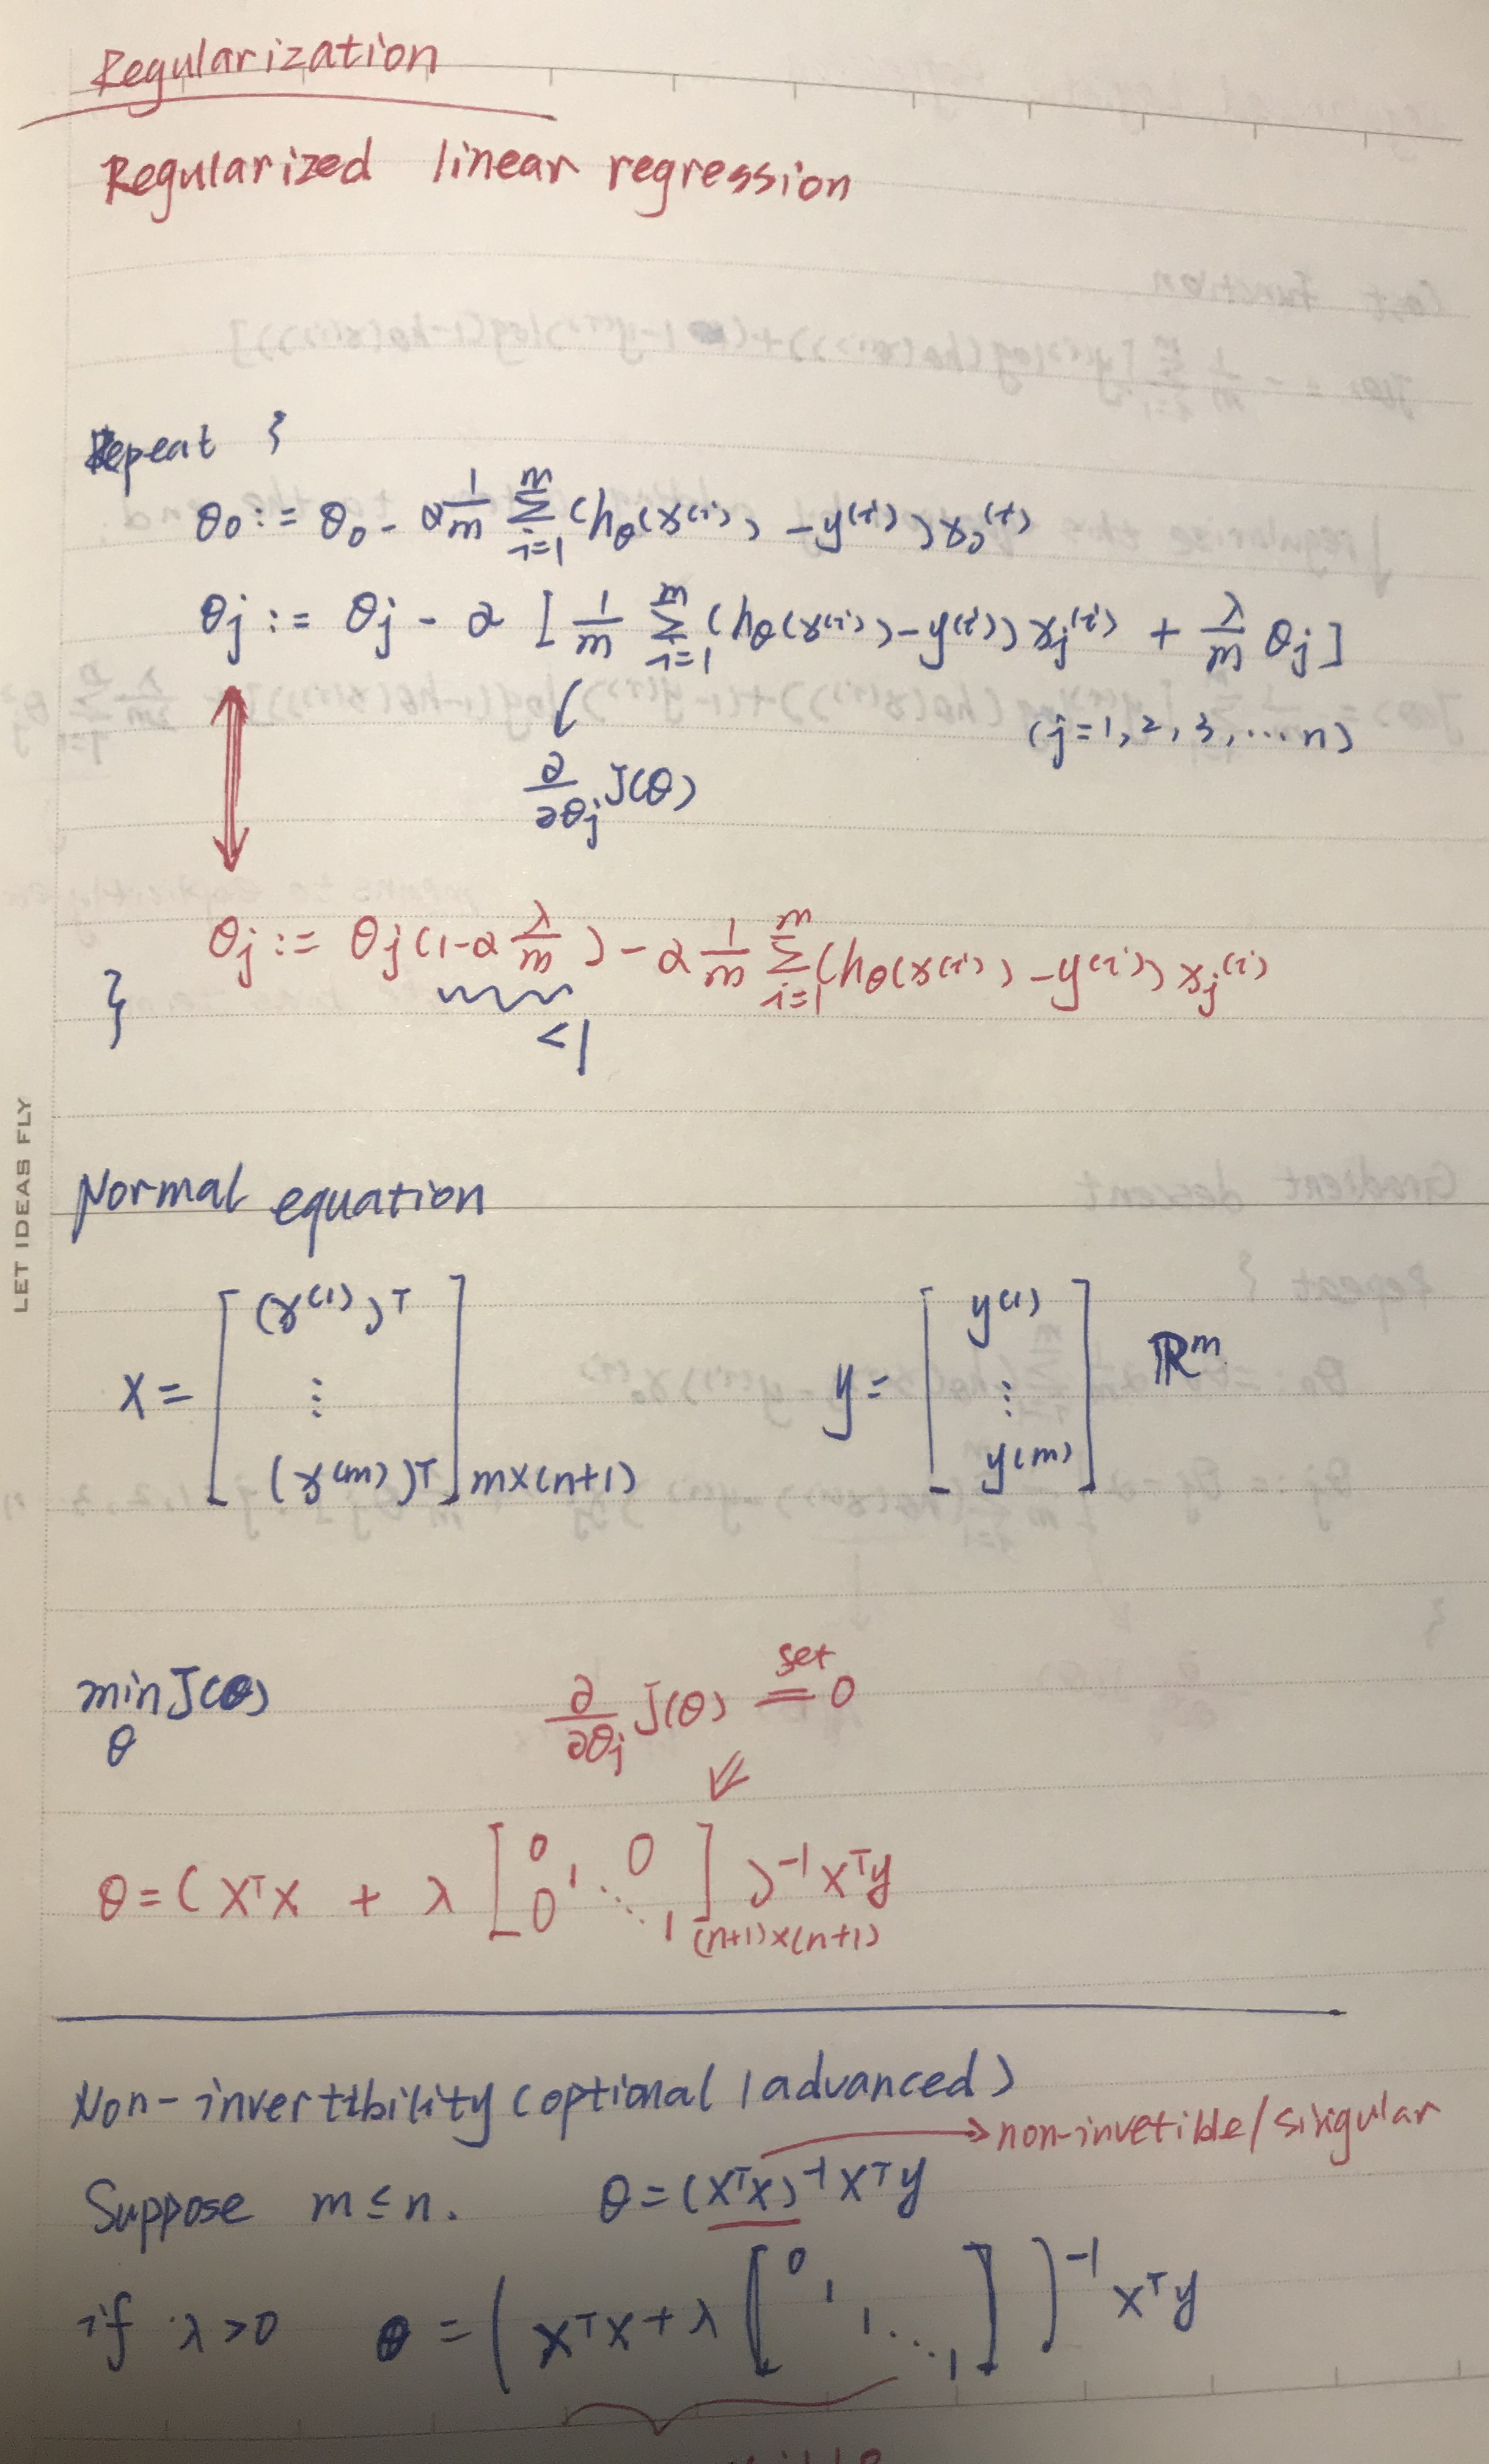 Regularization
Regularized linear regression
Repeat {
θ₀ := θ₀ - α 1/m Σ_{i=1}^{m} (h_θ(x^(i)) - y^(i)) x₀^(i)
θj := θj - α [ 1/m Σ_{i=1}^{m} (h_θ(x^(i)) - y^(i)) xj^(i) + λ/m θj ]
(j=1, 2, 3, ... n)
∂/∂θj J(θ)
θj := θj (1-α λ/m) - α 1/m Σ_{i=1}^{m} (h_θ(x^(i)) - y^(i)) xj^(i)
}
<1
LET IDEAS FLY
Normal equation
X = [ (x^(1))ᵀ ⋮ (x^(m))ᵀ ] m×(n+1) y = [ y^(1) ⋮ y^(m) ] ℝᵐ
min_θ J(θ) ∂/∂θj J(θ) set = 0
θ = ( XᵀX + λ [ 0 1 0 0 ⋱ 1 ] (n+1)×(n+1) )⁻¹ Xᵀy
Non-invertibility (optional / advanced)
→ non-invetible / singular
Suppose m ≤ n. θ = (XᵀX)⁻¹ Xᵀy
if λ>0 θ = ( XᵀX + λ [ 0 1 1 ⋱ 1 ] )⁻¹ Xᵀy